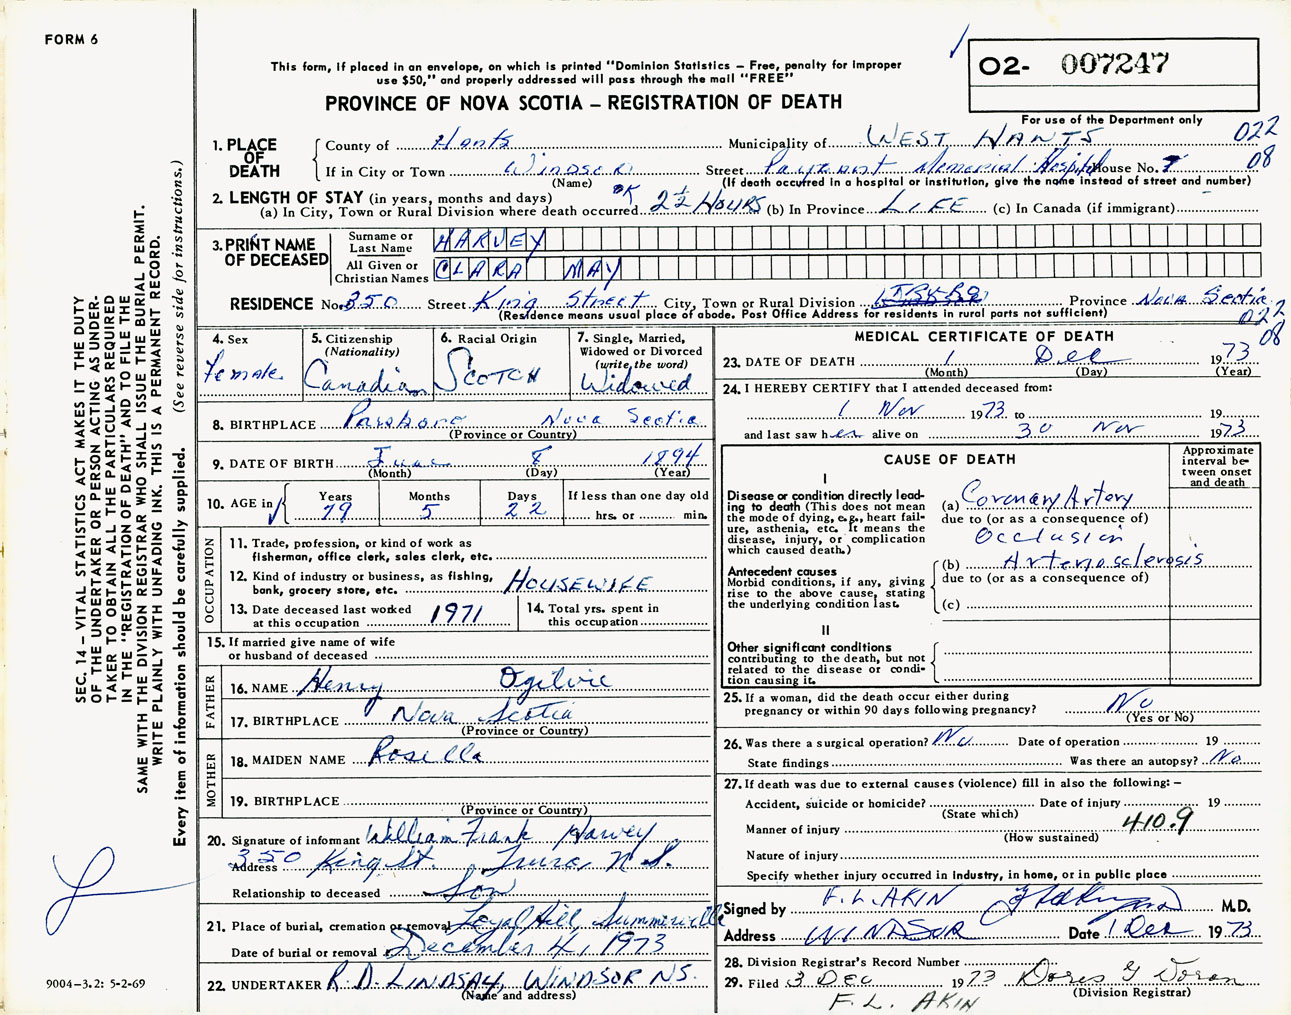 FORM 6
This form, if placed in an envelope, on which is printed "Dominion Statistics – Free, penalty for improper
use $50," and properly addressed will pass through the mail "FREE"
PROVINCE OF NOVA SCOTIA – REGISTRATION OF DEATH
O2- 007247
For use of the Department only
1. PLACE OF DEATH
County of Hants Municipality of WEST HANTS 022
If in City or Town Windsor Street Payzant Memorial Hospital House No. 08
(Name) (If death occurred in a hospital or institution, give the name instead of street and number)
2. LENGTH OF STAY (in years, months and days)
(a) In City, Town or Rural Division where death occurred 2½ HOURS (b) In Province LIFE (c) In Canada (if immigrant)
3. PRINT NAME OF DECEASED
Surname or Last Name HARVEY
All Given or Christian Names CLARA MAY
RESIDENCE No. 350 Street King Street City, Town or Rural Division Province Nova Scotia
(Residence means usual place of abode. Post Office Address for residents in rural parts not sufficient)
022
08
4. Sex Female
5. Citizenship (Nationality) Canadian
6. Racial Origin SCOTCH
7. Single, Married, Widowed or Divorced (write the word) Widowed
8. BIRTHPLACE Parsboro Nova Scotia
(Province or Country)
9. DATE OF BIRTH June 8 1894
(Month) (Day) (Year)
10. AGE in Years 79 Months 5 Days 22 If less than one day old
hrs. or min.
OCCUPATION
11. Trade, profession, or kind of work as
fisherman, office clerk, sales clerk, etc.
12. Kind of industry or business, as fishing,
bank, grocery store, etc. HOUSEWIFE
13. Date deceased last worked
at this occupation 1971
14. Total yrs. spent in
this occupation
15. If married give name of wife
or husband of deceased
FATHER
16. NAME Henry Ogilvie
17. BIRTHPLACE Nova Scotia
(Province or Country)
MOTHER
18. MAIDEN NAME Rosella
19. BIRTHPLACE
(Province or Country)
20. Signature of informant William Frank Harvey
Address 350 King St. Truro, N S.
Relationship to deceased Son
21. Place of burial, cremation or removal Loyal Hill, Summerville
Date of burial or removal December 4, 1973
22. UNDERTAKER R. D. LINDSAY, WINDSOR NS.
(Name and address)
MEDICAL CERTIFICATE OF DEATH
23. DATE OF DEATH 1 Dec 1973
(Month) (Day) (Year)
24. I HEREBY CERTIFY that I attended deceased from:
1 Nov 1973 to 19
and last saw her alive on 30 Nov 1973
CAUSE OF DEATH
Approximate interval between onset and death
I
Disease or condition directly leading to death (This does not
mean the mode of dying, e.g., heart failure, asthenia, etc. It means the
disease, injury, or complication
which caused death.)
(a) Coronary Artery
due to (or as a consequence of)
Occlusion
Antecedent causes
Morbid conditions, if any, giving
rise to the above cause, stating
the underlying condition last.
(b) Arteriosclerosis
due to (or as a consequence of)
(c)
II
Other significant conditions
contributing to the death, but not
related to the disease or condition causing it.
25. If a woman, did the death occur either during
pregnancy or within 90 days following pregnancy? No
(Yes or No)
26. Was there a surgical operation? No Date of operation 19
State findings Was there an autopsy? No
27. If death was due to external causes (violence) fill in also the following: –
Accident, suicide or homicide? Date of injury 19
(State which)
Manner of injury 410.9
(How sustained)
Nature of injury
Specify whether injury occurred in industry, in home, or in public place
Signed by F. L. AKIN M.D.
Address WINDSOR Date 1 Dec 1973
28. Division Registrar's Record Number
29. Filed 3 DEC 1973 Doris G Doran
(Division Registrar)
F. L. AKIN
SEC. 14 – VITAL STATISTICS ACT MAKES IT THE DUTY
OF THE UNDERTAKER OR PERSON ACTING AS UNDER-
TAKER TO OBTAIN ALL THE PARTICULARS REQUIRED
IN THE "REGISTRATION OF DEATH" AND TO FILE THE
SAME WITH THE DIVISION REGISTRAR WHO SHALL ISSUE THE BURIAL PERMIT.
WRITE PLAINLY WITH UNFADING INK. THIS IS A PERMANENT RECORD.
Every item of information should be carefully supplied. (See reverse side for instructions.)
9004-3.2: 5-2-69